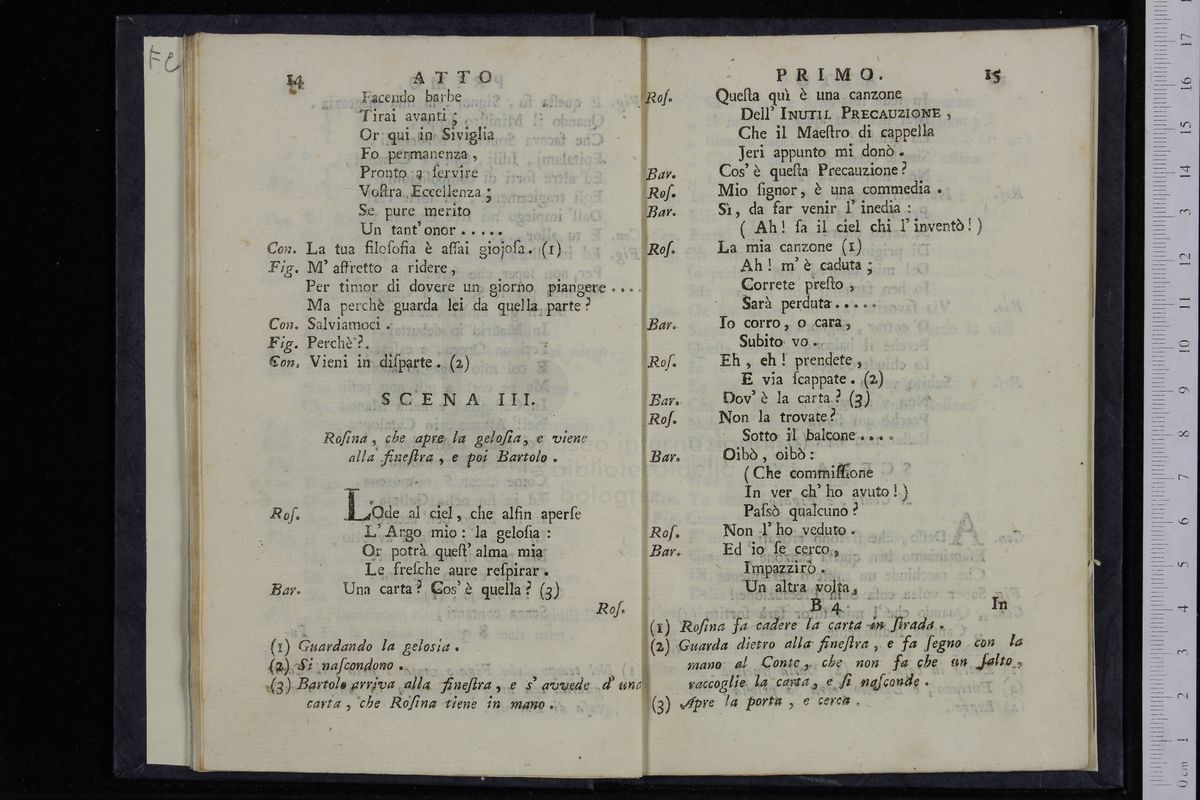 FC
14 ATTO
Facendo barbe
Tirai avanti ;
Or qui in Siviglia
Fo permanenza ,
Pronto a ſervire
Voſtra Eccellenza ;
Se pure merito
Un tant' onor .....
Con. La tua filoſofia è aſſai giojoſa. (1)
Fig. M' affretto a ridere ,
Per timor di dovere un giorno piangere ....
Ma perchè guarda lei da quella parte ?
Con. Salviamoci .
Fig. Perchè ?.
Con. Vieni in diſparte . (2)
SCENA III.
Roſina , che apre la geloſia, e viene
alla fineſtra , e poi Bartolo .
Roſ. LOde al ciel , che alfin aperſe
L' Argo mio : la geloſia :
Or potrà queſt' alma mia
Le freſche aure reſpirar .
Bar. Una carta ? Cos' è quella ? (3)
Roſ.
(1) Guardando la gelosia .
(2) Si naſcondono .
(3) Bartolo arriva alla fineſtra , e s' avvede d' una
carta , che Roſina tiene in mano .
PRIMO. 15
Roſ. Queſta quì è una canzone
Dell' INUTIL PRECAUZIONE ,
Che il Maeſtro di cappella
Jeri appunto mi donò .
Bar. Cos' è queſta Precauzione ?
Roſ. Mio ſignor , è una commedia .
Bar. Sì , da far venir l' inedia :
( Ah ! ſa il ciel chi l' inventò ! )
Roſ. La mia canzone (1)
Ah ! m' è caduta ;
Correte preſto ,
Sarà perduta .....
Bar. Io corro , o cara ,
Subito vo .
Roſ. Eh , eh ! prendete ,
E via ſcappate . (2)
Bar. Dov' è la carta ? (3)
Roſ. Non la trovate ?
Sotto il balcone ....
Bar. Oibò , oibò :
( Che commiſſione
In ver ch' ho avuto ! )
Paſsò qualcuno ?
Roſ. Non l' ho veduto .
Bar. Ed io ſe cerco ,
Impazzirò .
Un altra volta ,
B 4 In
(1) Roſina fa cadere la carta in ſtrada .
(2) Guarda dietro alla fineſtra , e fa ſegno con la
mano al Conte , che non fa che un ſalto ,
raccoglie la carta , e ſi naſconde .
(3) Apre la porta , e cerca .